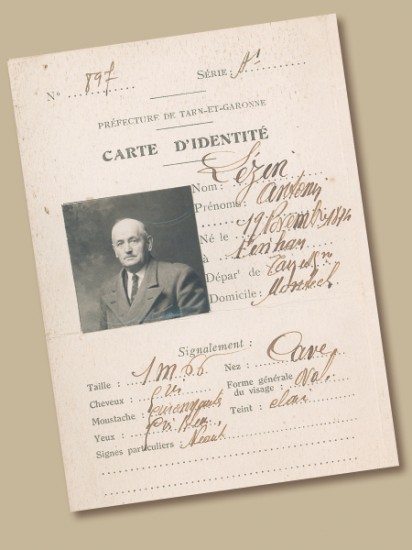 N° 897 SÉRIE: A¹
PRÉFECTURE DE TARN-ET-GARONNE
CARTE D'IDENTITÉ
Nom: Lézin
Prénoms: Antony
Né le 19 Novembre
à Finhan
Départ' de
Domicile:
Signalement:
Taille: 1 m 66
Nez: Cave
Cheveux: Gris
Forme générale du visage: Oval
Moustache:
Yeux: Gris bleu
Teint: clair
Signes particuliers: Néant